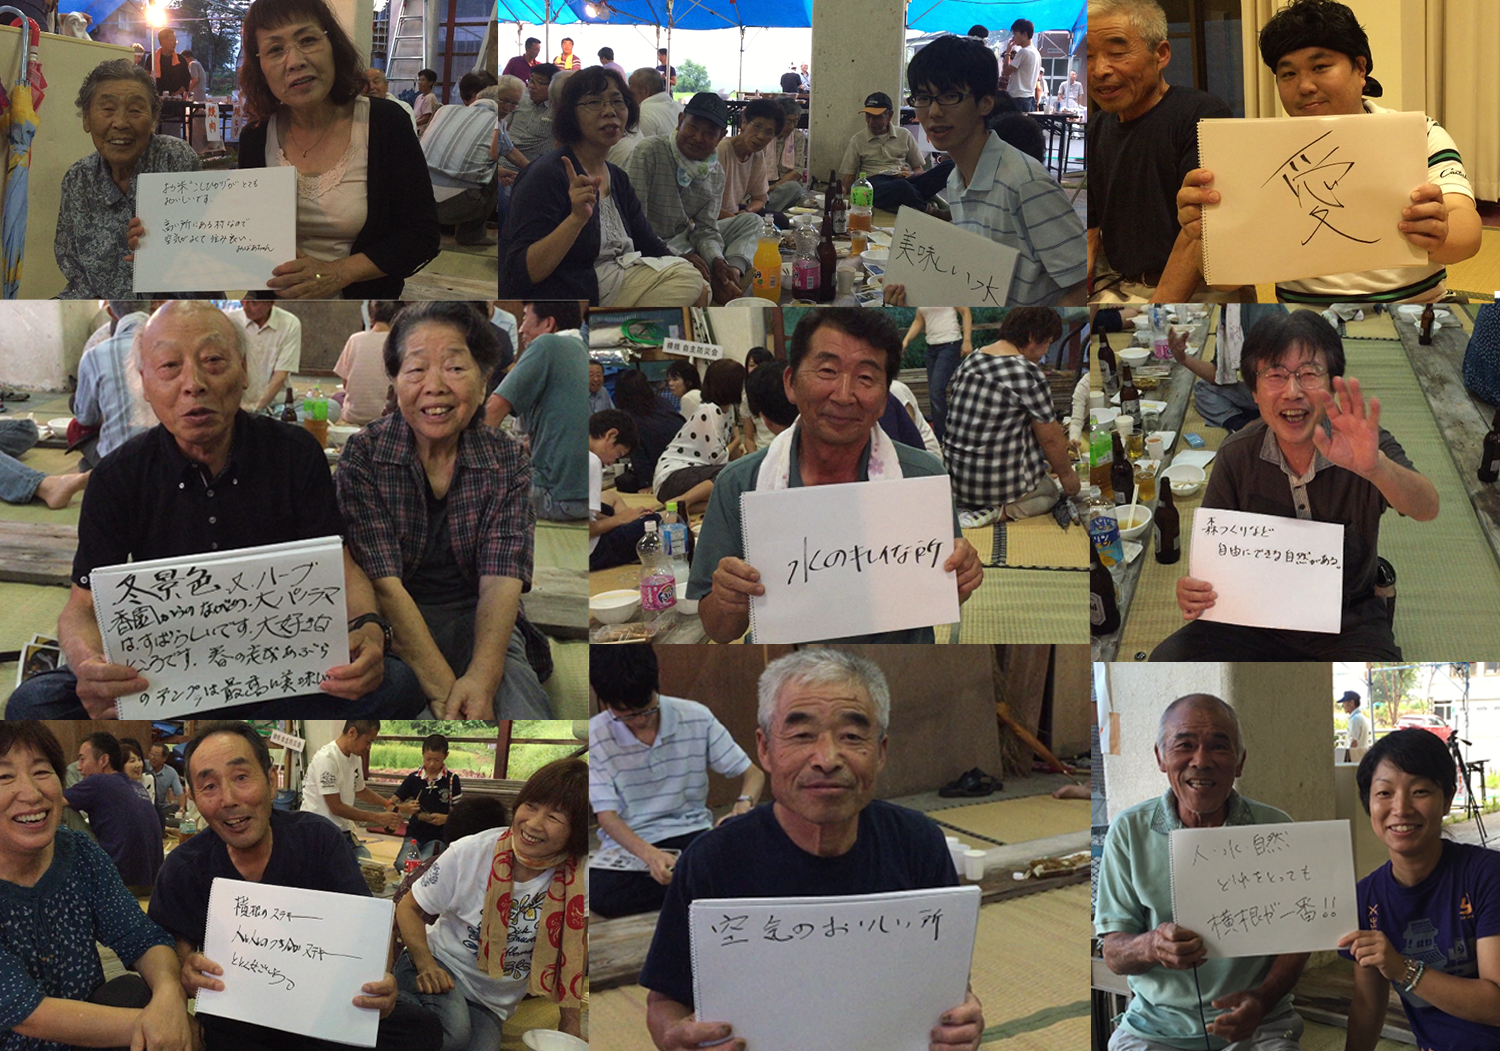 お米"こしひかり"が とても
おいしいです。
高い所にある村なので
空気がよくて 住み良い。
みはるちゃん
美味しい水
愛
冬景色 又、ハーブ
香園からのながめの、大パノラマ
は、すばらしいです。大好きな
ところです。春の
のテンプラは最高に美味しい
横根 自主防災会
水のキレイな所
森づくりなど
自由にできる自然がある。
横根のステキ―
ステキ―
空気のおいしい所
人・水・自然
どれをとっても
横根が一番!!